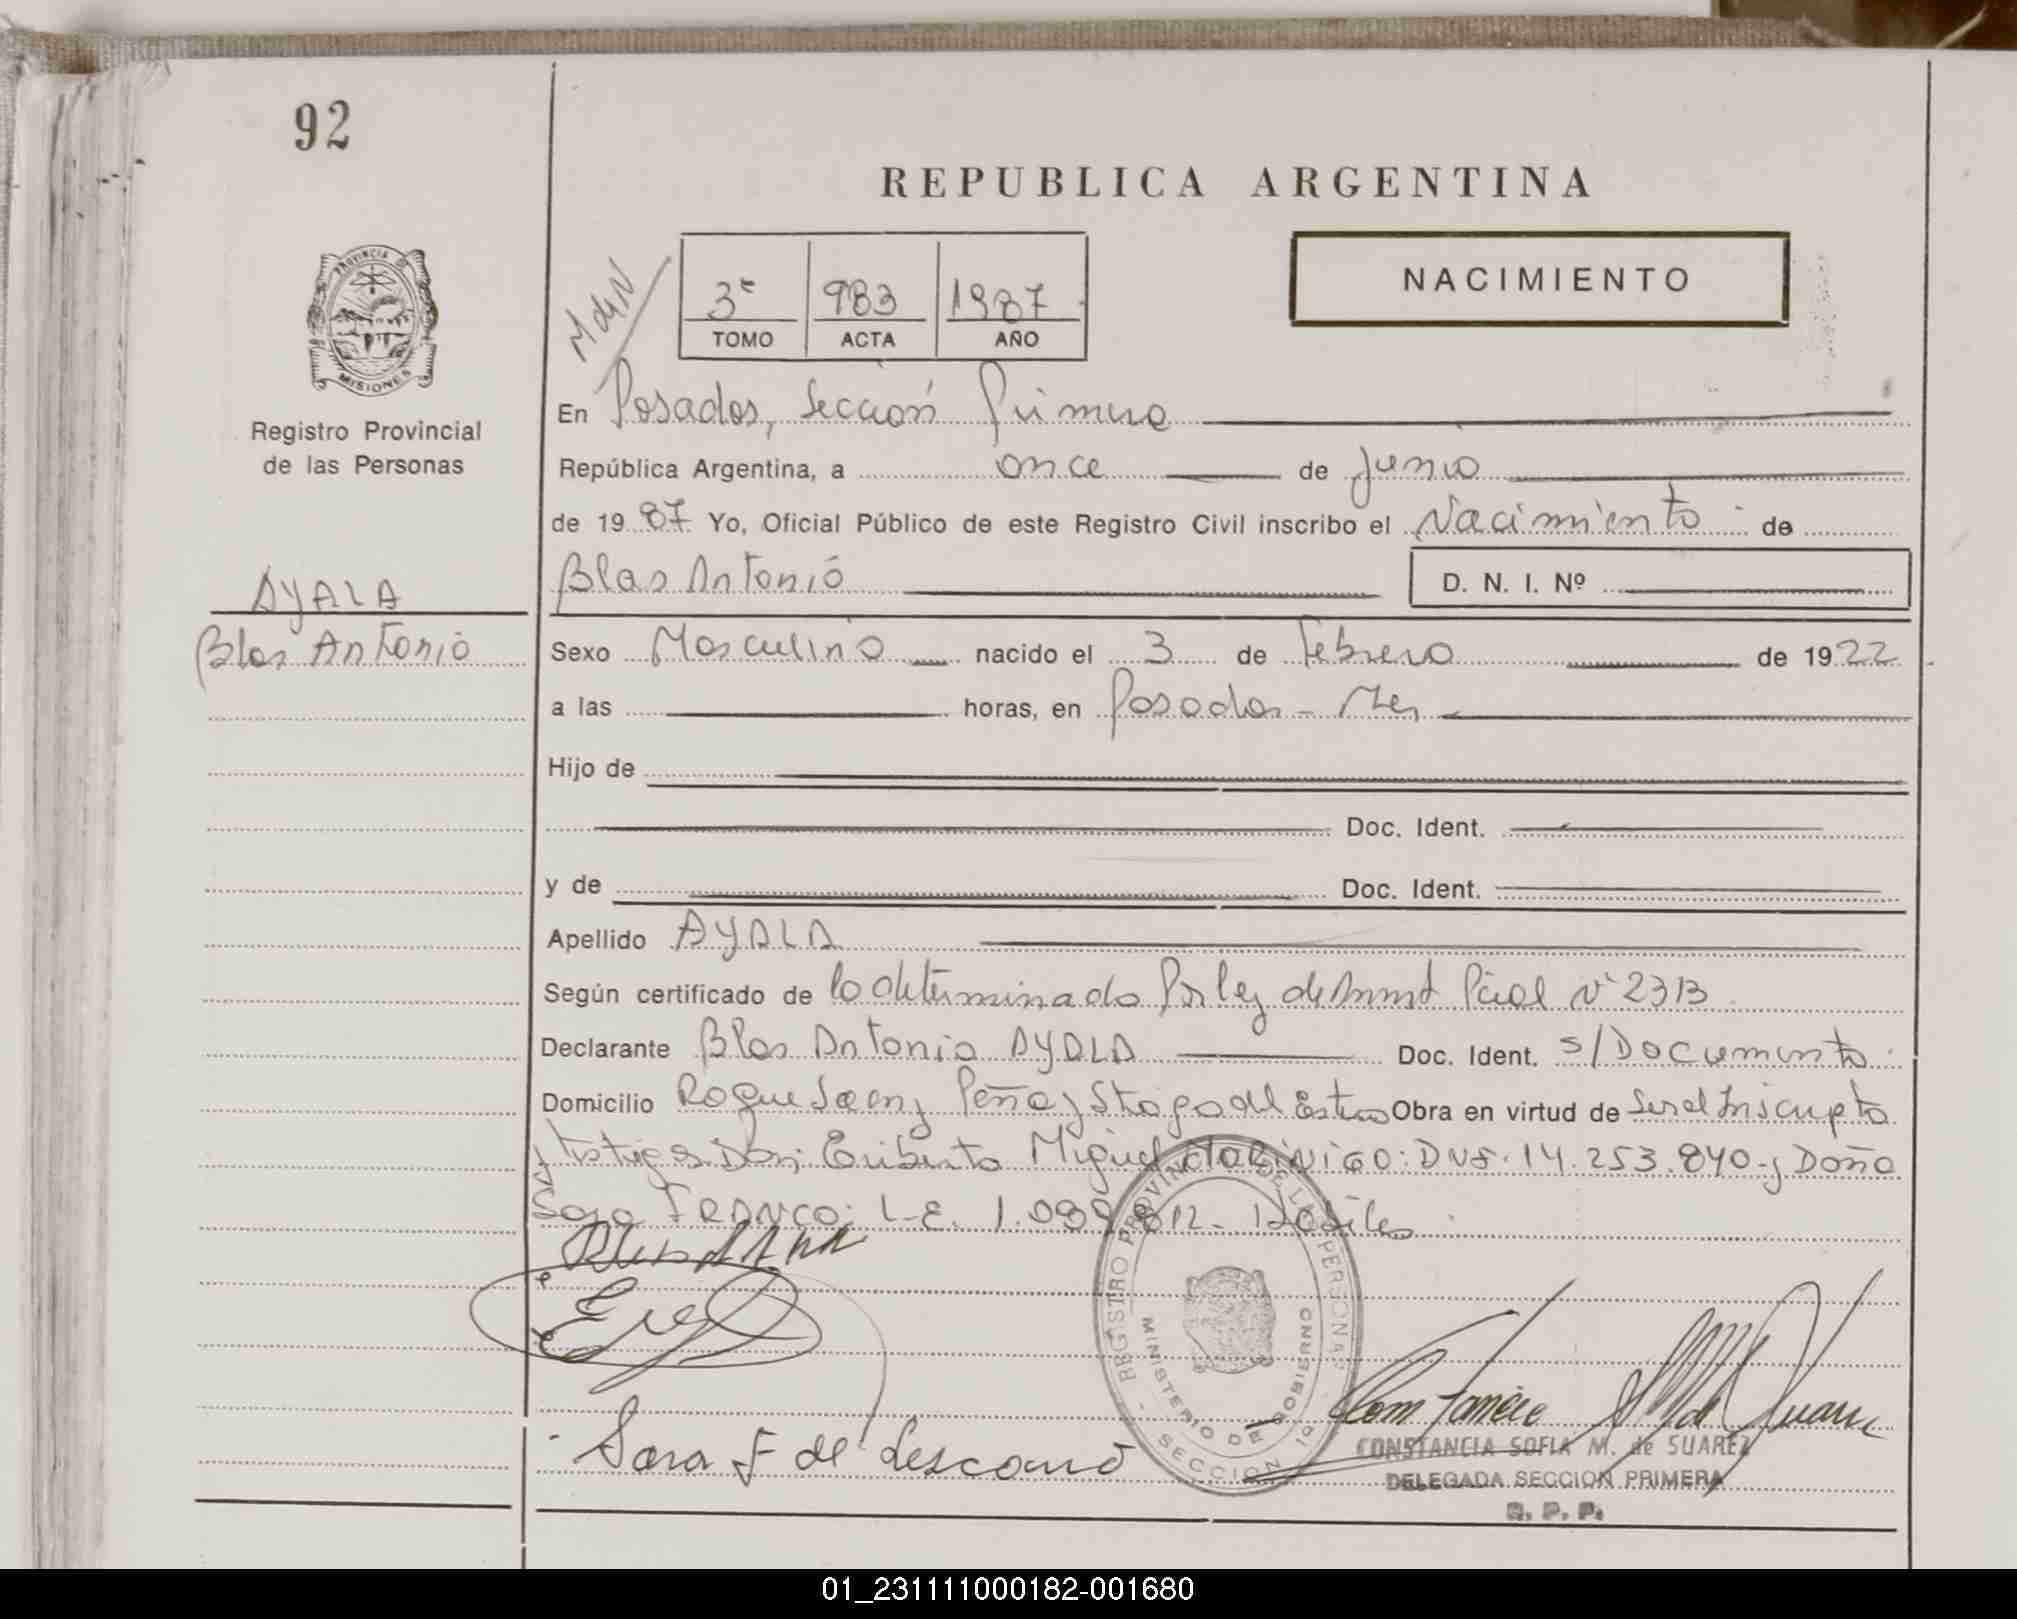 92
REPUBLICA ARGENTINA
PROVINCIA DE
MISIONES
Registro Provincial
de las Personas
MdN
3º 983 1987
TOMO ACTA AÑO
NACIMIENTO
En Posadas, Sección Primera
República Argentina, a once de Junio
de 1987 Yo, Oficial Público de este Registro Civil inscribo el Nacimiento de
Blas Antonio D. N. I. Nº
AYALA
Blas Antonio
Sexo Masculino nacido el 3 de Febrero de 1922
a las horas, en Posadas - Mes
Hijo de
Doc. Ident.
y de Doc. Ident.
Apellido AYALA
Según certificado de lo determinado por ley de Amnt Pcial Nº 2313
Declarante Blas Antonio AYALA Doc. Ident. s/Documento.
Domicilio Roque Saenz Peña y Stgo del Estero Obra en virtud de Ser el Inscripto
y testigos Don: Eriberto Miguel DNI. 14.253.840- y Doña
Sara FRANCO: L.E. 1.089.812- Hábiles
REGISTRO PROVINCIAL DE LAS PERSONAS
MINISTERIO DE GOBIERNO
SECCION 1ª
Sara F de Lescano
CONSTANCIA SOFIA M. de SUAREZ
DELEGADA SECCION PRIMERA
R. P. P.
01_231111000182-001680